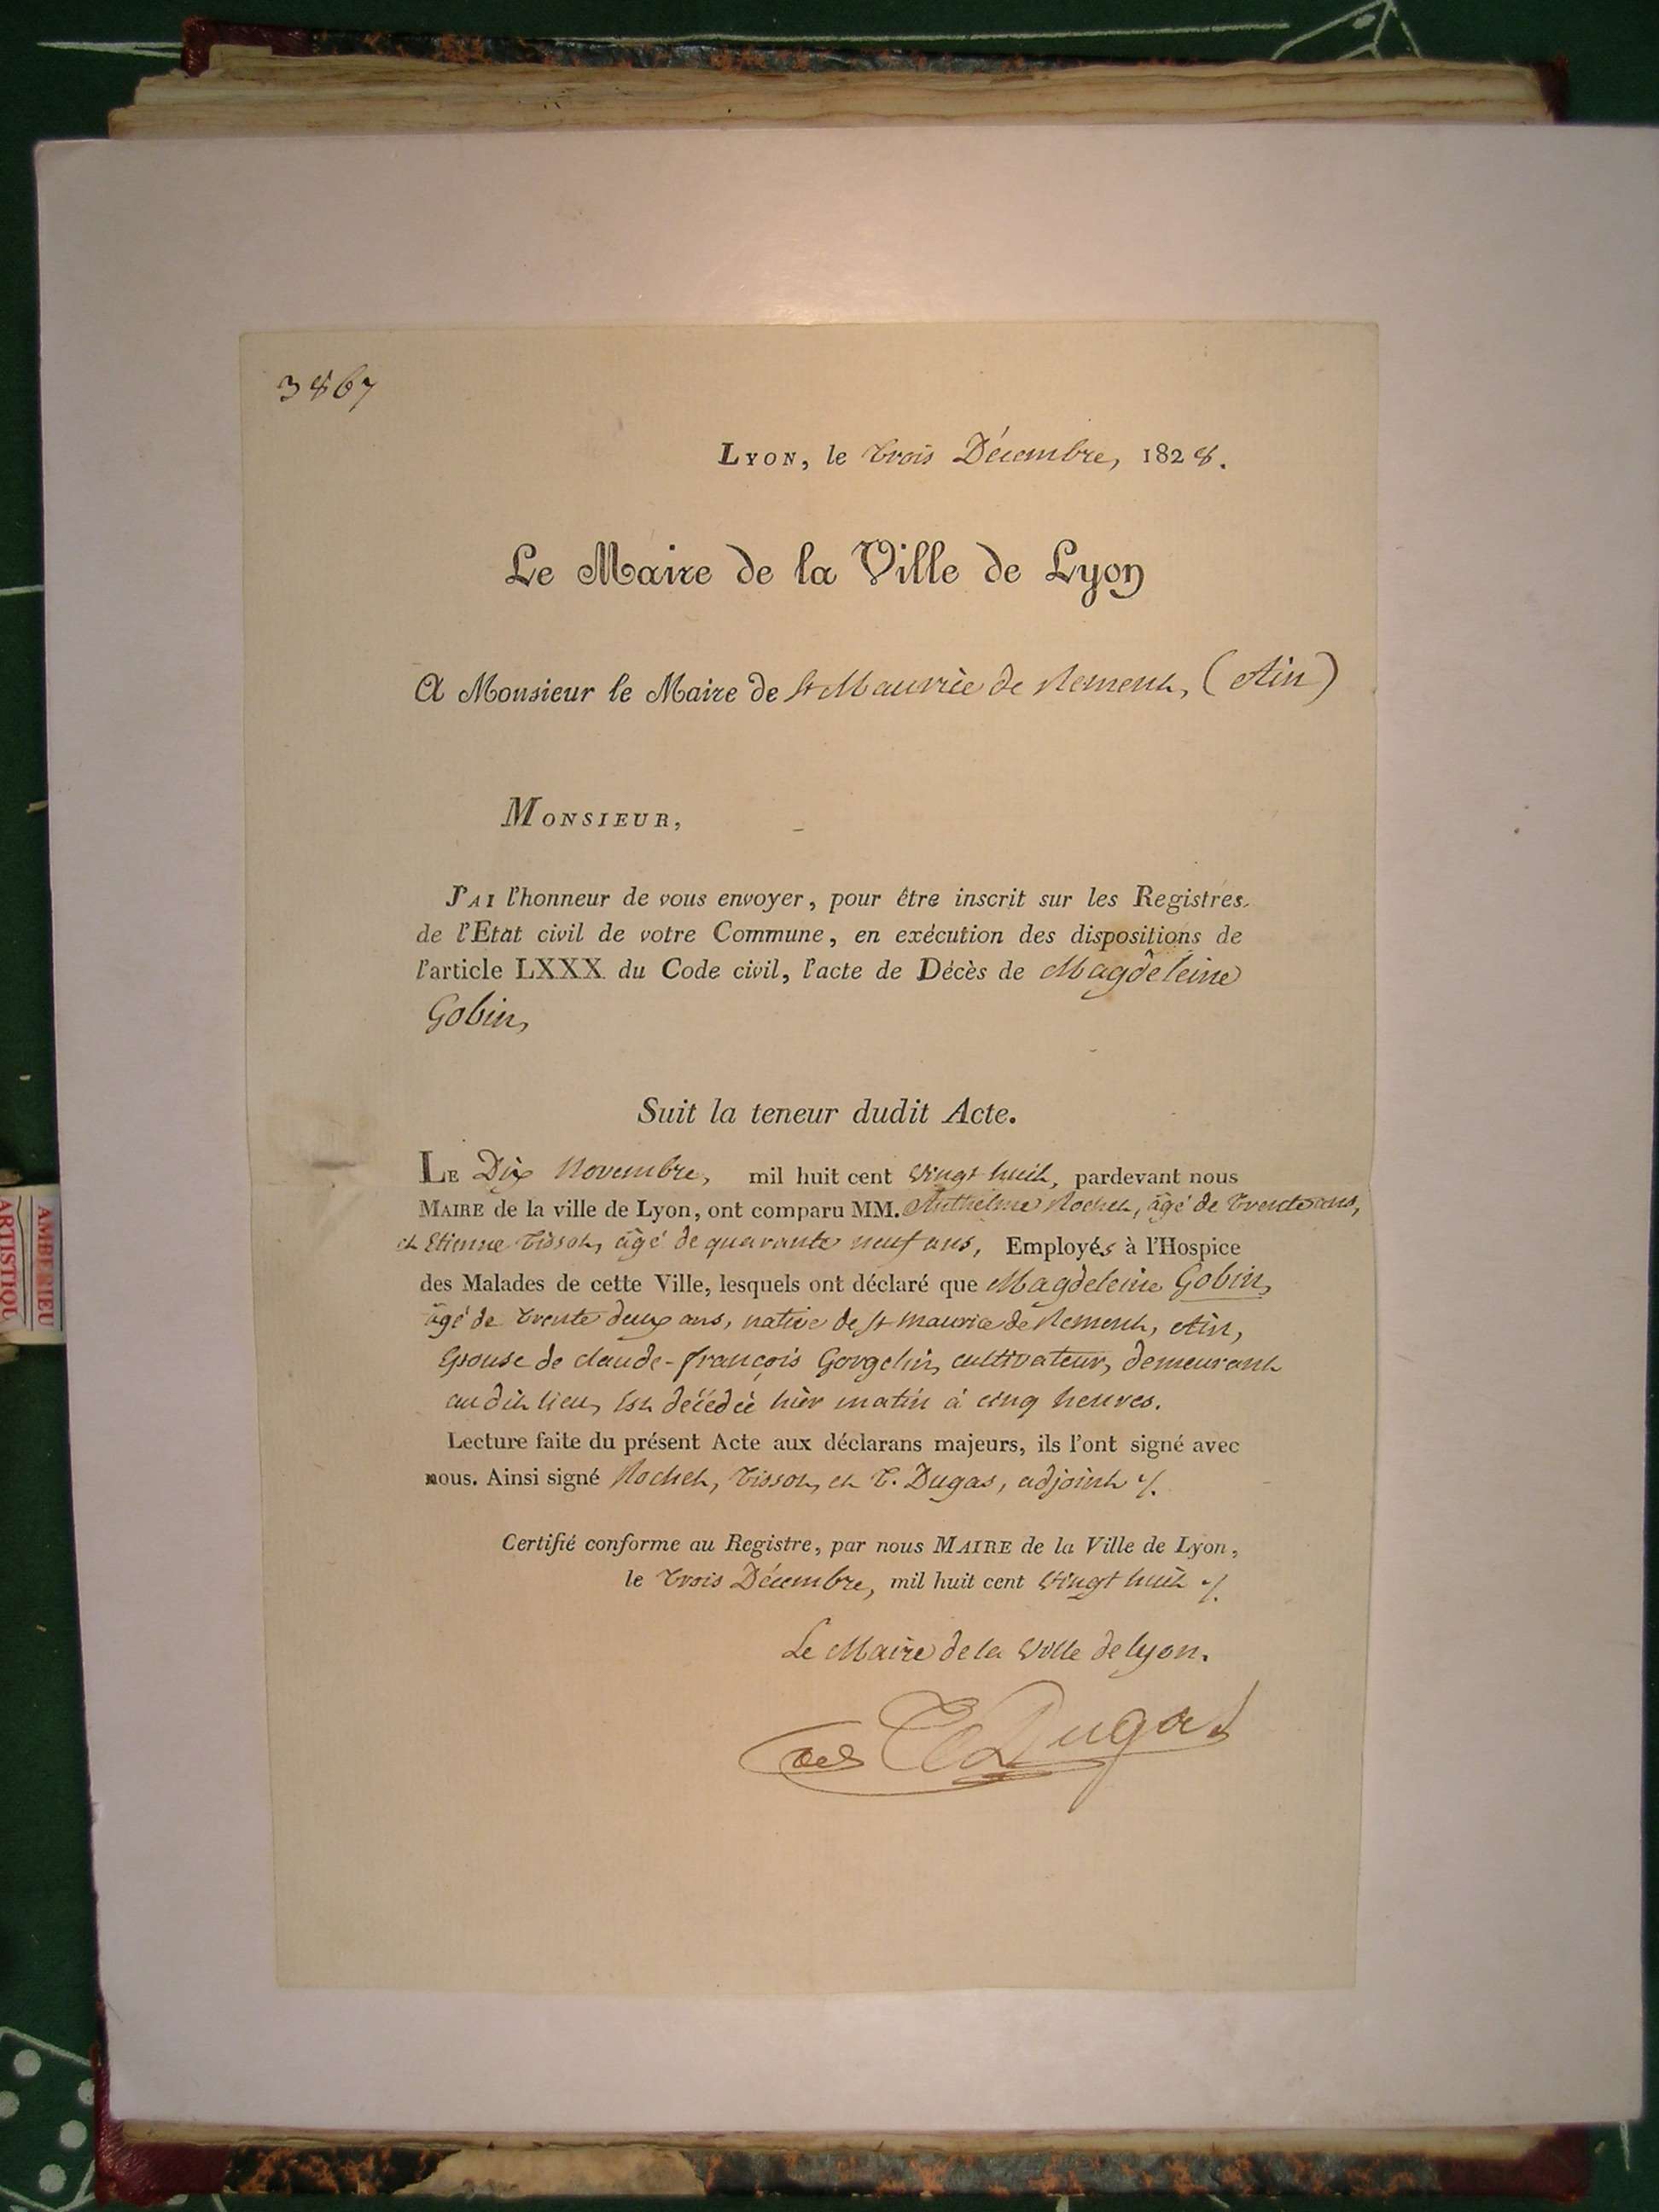 3867
LYON, le trois Décembre, 1828.
Le Maire de la Ville de Lyon
A Monsieur le Maire de St Maurice de Rement, (Ain)
MONSIEUR,
J'AI l'honneur de vous envoyer, pour être inscrit sur les Registres
de l'Etat civil de votre Commune, en exécution des dispositions de
l'article LXXX du Code civil, l'acte de Décès de Magdeleine
Gobin,
Suit la teneur dudit Acte.
LE Dix Novembre, mil huit cent vingt huit, pardevant nous
MAIRE de la ville de Lyon, ont comparu MM. Anthelme Rochet, âgé de trente ans,
et Etienne Tissot, âgé de quarante neuf ans, Employés à l'Hospice
des Malades de cette Ville, lesquels ont déclaré que Magdeleine Gobin,
âgé de trente deux ans, native de St Maurice de Rement, Ain,
Epouse de claude-françois Gorgelin, cultivateur, demeurant
au dit lieu, Est décédée hier matin à cinq heures.
Lecture faite du présent Acte aux déclarans majeurs, ils l'ont signé avec
nous. Ainsi signé Rochet, Tissot, et T. Dugas, adjoint ./.
Certifié conforme au Registre, par nous MAIRE de la Ville de Lyon,
le trois Décembre, mil huit cent vingt huit ./.
Le Maire de la Ville de Lyon.
Dugas
AMBERIEU
ARTISTIQU